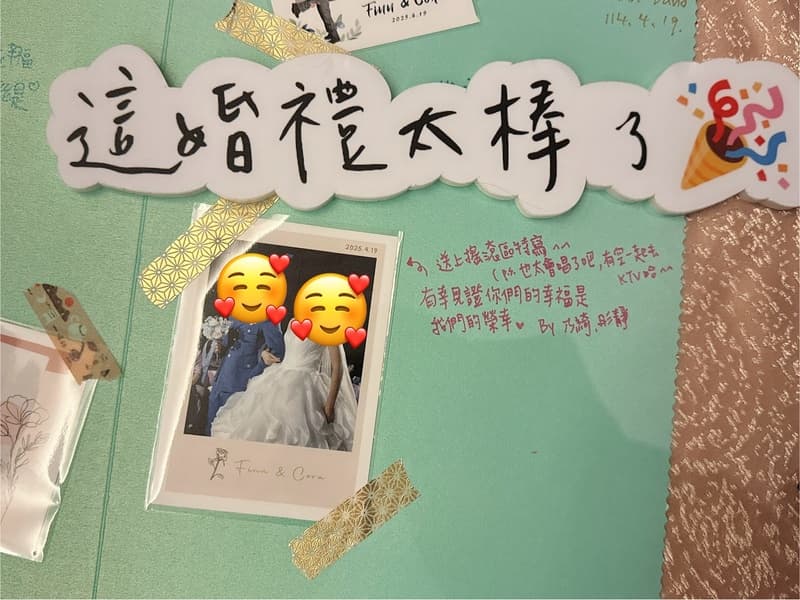 Finn & Cora
2025.4.19
114.4.19.
福
這婚禮太棒了
2025.4.19
送上搖滾區特寫^^
也太會唱了吧,有空一起去
KTV哈~~
有幸見證你們的幸福是
我們的榮幸♥ By 乃綺.彤靜
Finn & Cora